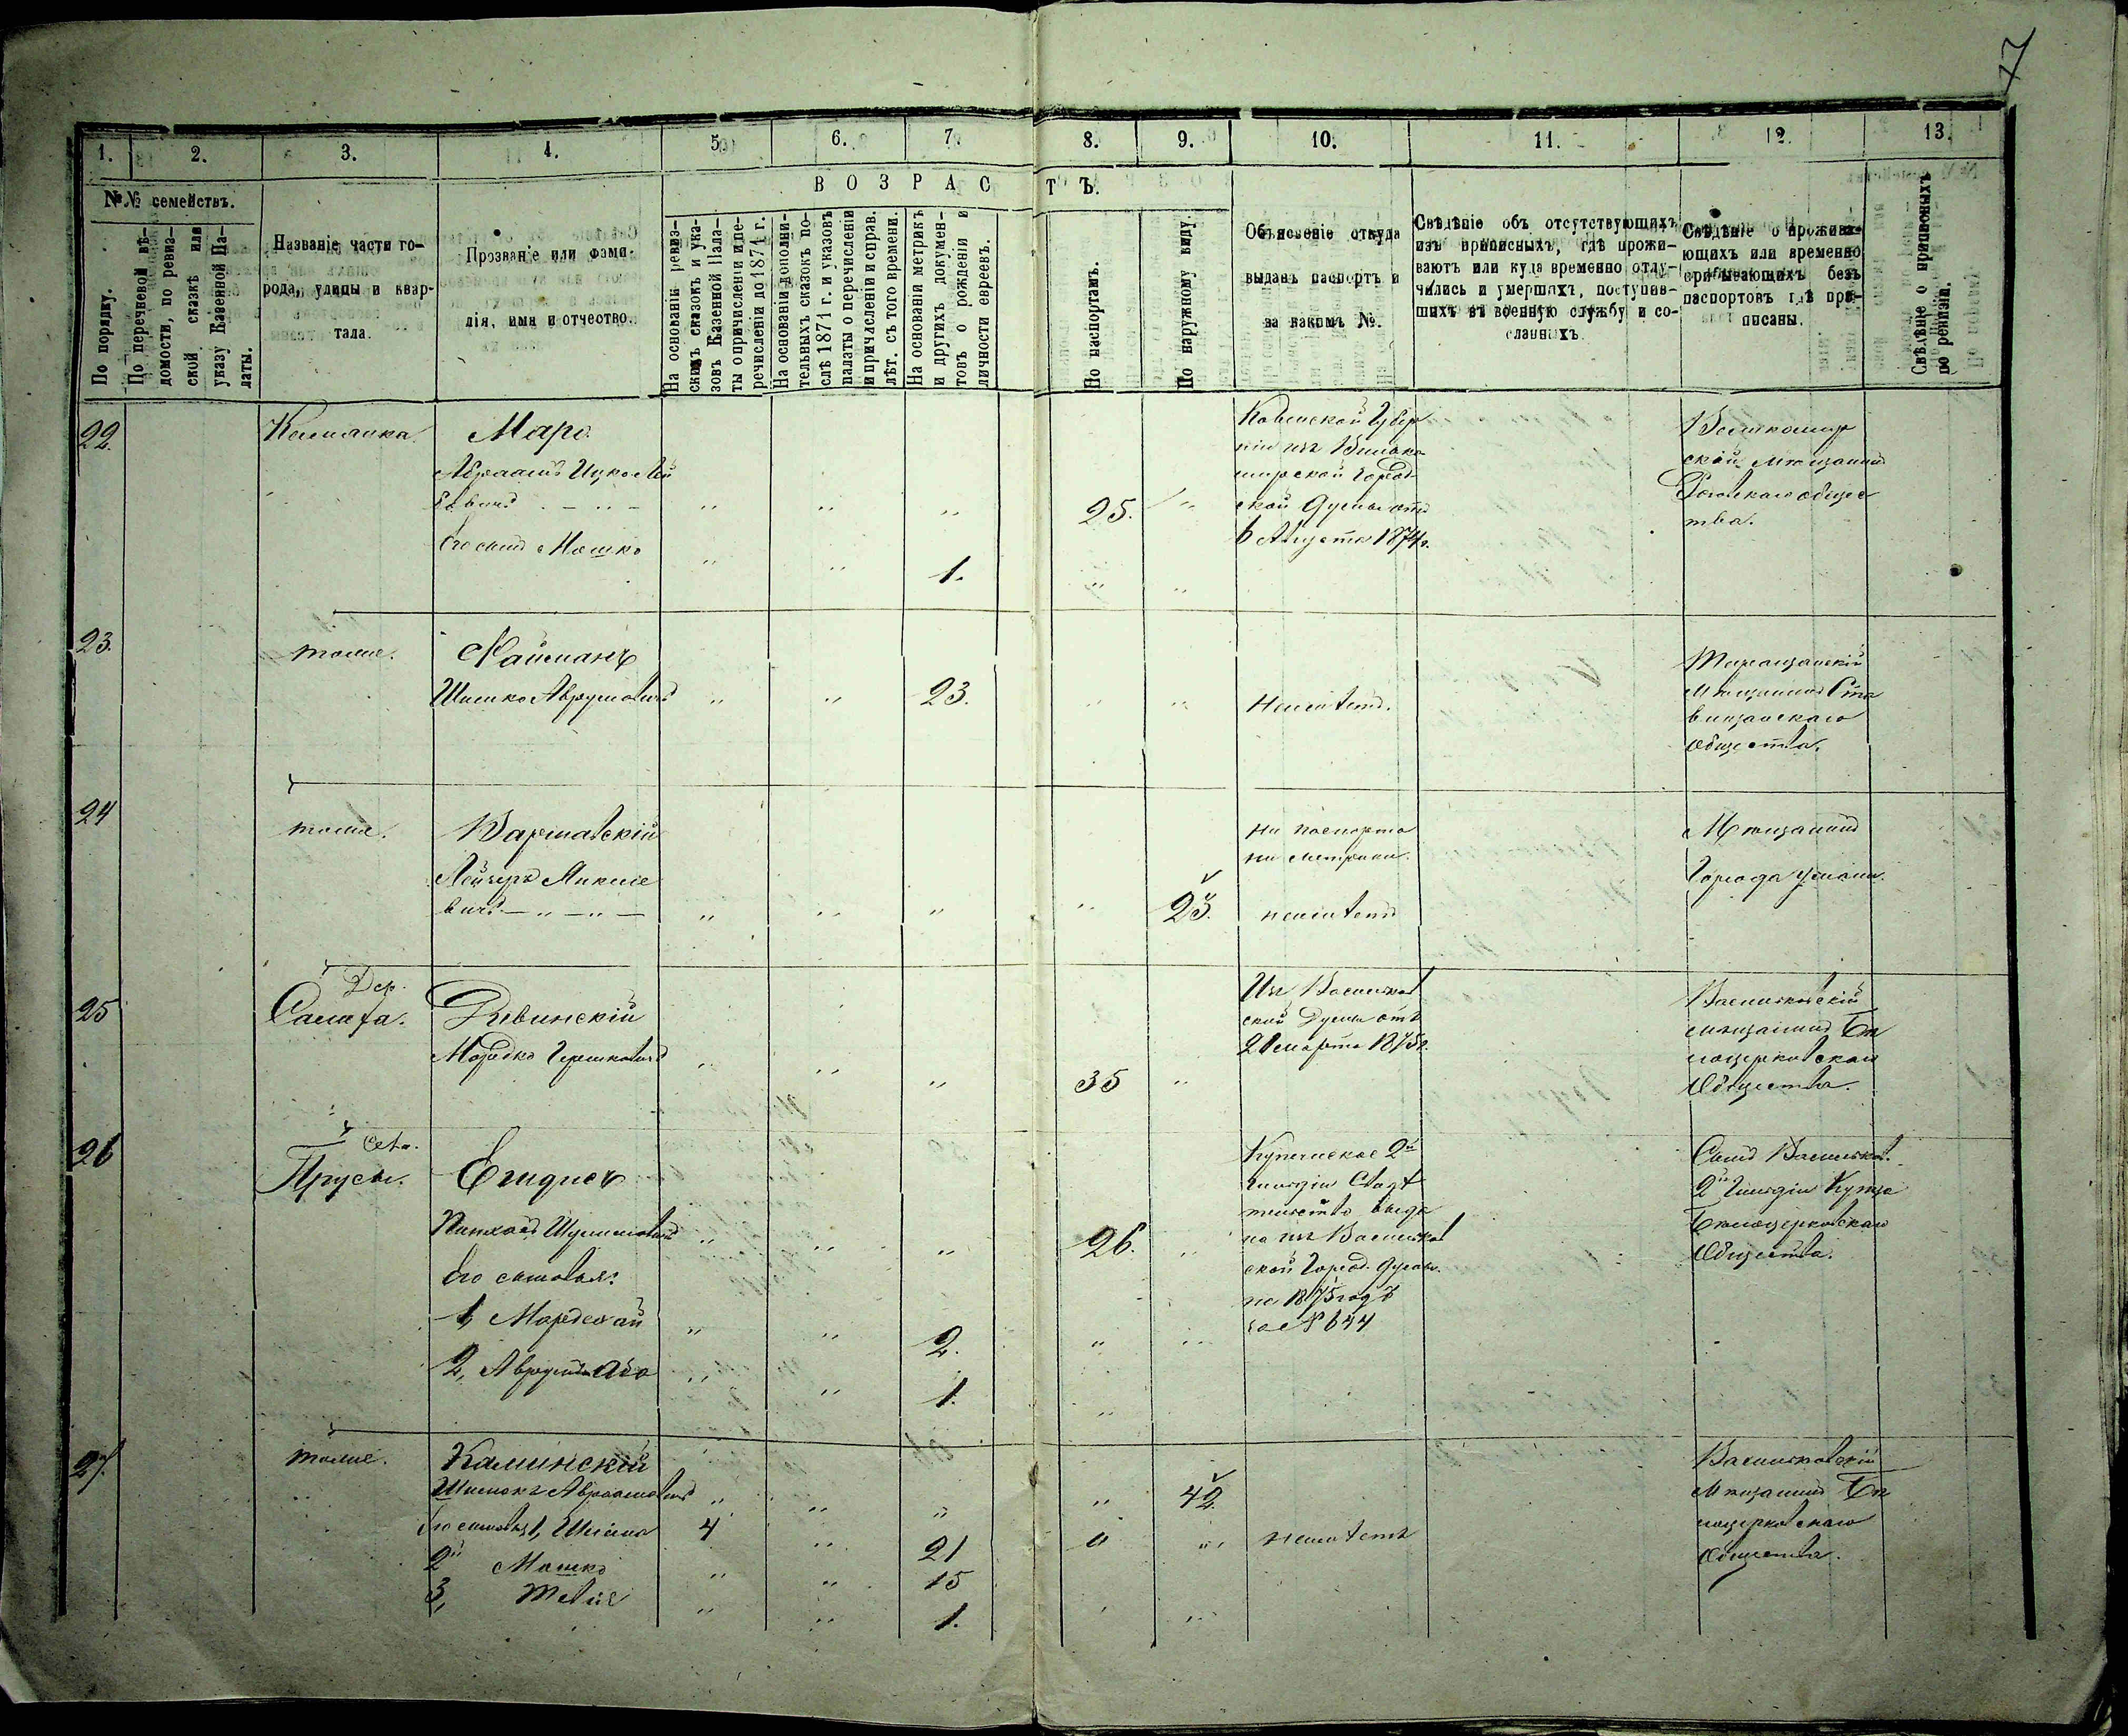 17
1. 2. 3. 4. 5. 6. 7. 8. 9. 10. 11. 12. 13.
№№ семействъ.
По порядку.
По перечневой вѣ-
домости, по ревиз-
ской сказкѣ или
указу Казенной Па-
латы.
Названіе части го-
рода, улицы и квар-
тала.
Прозваніе или фами-
лія, имя и отчество.
ВОЗРАСТЪ.
На основаніи ревиз-
скихъ сказокъ и ука-
зовъ Казенной Пала-
ты о причисленіи и пе-
речисленіи до 1874 г.
На основаніи дополни-
тельныхъ сказокъ по-
слѣ 1874 г. и указовъ
палаты о перечисленіи
и причисленіи и справ.
лѣт. съ того времени.
На основаніи метрикъ
и другихъ докумен-
товъ о рожденіи и
личности евреевъ.
По паспортамъ.
По наружному виду.
Объясненіе откуда
выданъ паспортъ и
за какимъ №.
Свѣдѣніе объ отсутствующихъ
изъ приписныхъ, гдѣ прожи-
ваютъ или куда временно отлу-
чились и умершихъ, поступив-
шихъ въ военную службу и со-
сланныхъ.
Свѣдѣніе о прожива-
ющихъ или временно
безъ
паспортовъ гдѣ при-
писаны.
Свѣдѣніе о приписныхъ
по ревизіи.
22.
Маро
Абраамъ Ицко Лей
бовичъ
25.
Его сынъ Мошко
1.
Ковенской Губер
ніи изъ Вилько
мирской Город-
ской Думы отъ
6 Августа 1874 г.
Вилькомир
скій мѣщанинъ
общес
тва.
23.
тоже.
Шимко Аврумовичъ
23.
Неимѣетъ.
Таращанскій
мѣщанинъ Ста
вищанскаго
Общества.
24
тоже.
Варшавскій
Лейзеръ Янкеле
вичъ
23.
ни паспорта
ни метрики.
неимѣетъ
Мѣщанинъ
Города Умани.
25
Дер.
Ривинскій
Мордко Гершковичъ
35
Изъ Васильков
ской Думы отъ
21 марта 1875 г.
Васильковскій
мѣщанинъ Бѣ
лоцерковскаго
Общества.
26
Село.
Прусы.
Пинхасъ Шулимовичъ
26.
Его сыновья:
1, Мордехай
2.
2, Аврумъ Аба
1.
Купеческое 2й
гильдіи Свидѣ
тельство выда
но изъ Васильков
ской Город. Думы.
на 1875 годъ
за № 644
Сынъ Васильков.
2й гильдіи Купца
Бѣлоцерковскаго
Общества.
27.
тоже.
Каминскій
Шимонъ Авраамовичъ
42.
Его сыновья 1,
4
21
2й Мошко
15
3,
1.
неимѣетъ
Васильковскій
Мѣщанинъ Бѣ
лоцерковскаго
Общества.